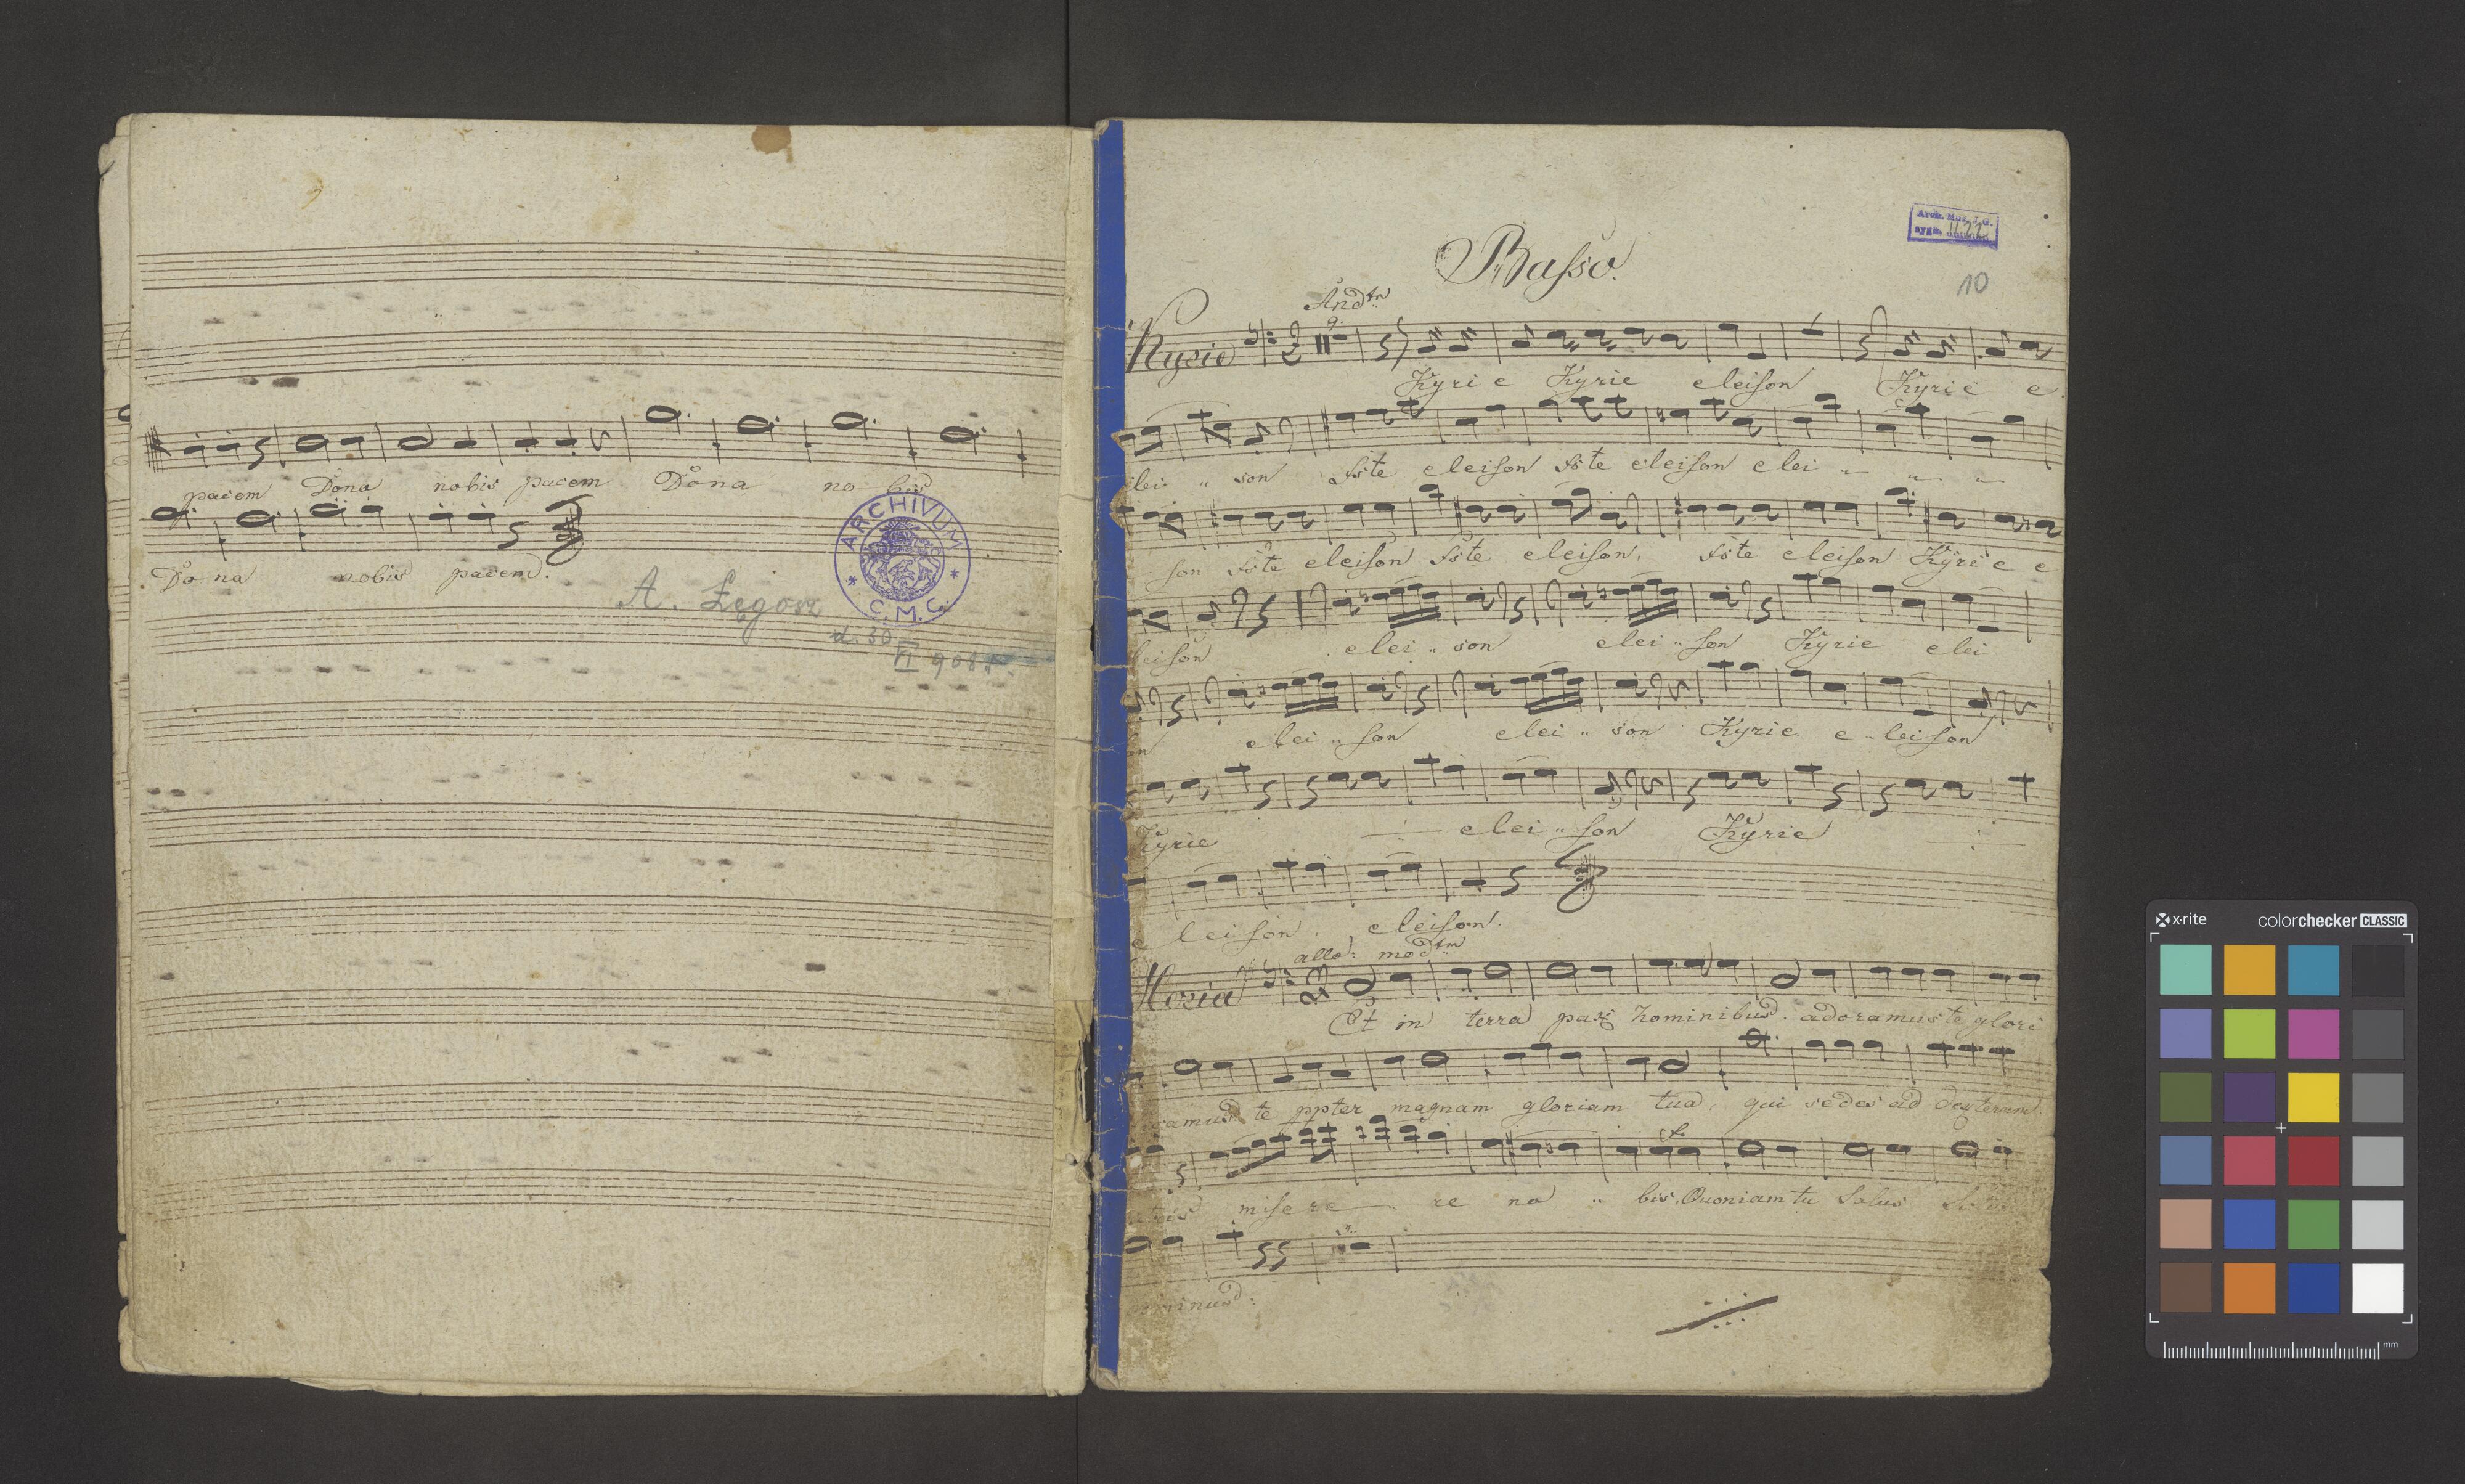 pacem Dona nobis pacem Dona no bis
Do na nobis pacem.
ARCHIVUM
C.M.C.
A. Łęgosz
d. 30 VI 908 r.
Arch. Muz.
sygn. 1122
10
Basso.
Andtn
9.
Kyrie
Kyri e Kyrie eleison Kyrie e
lei " son Xste eleison Xste eleison elei " "
son Xste eleison Xste eleison. Xste eleison Kyrie e
leison elei " son elei " son Kyrie elei
on elei " son elei " son Kyrie e " leison
Kyrie elei " son Kyrie
e leison. eleison.
allo: modtn
Gloria
Et in terra pax hominibus. adoramus te glori
camus te ppter magnam gloriam tua. qui sedes ad dexteram
misere " re no " bis. Quoniam tu solus
minus:
x-rite
colorchecker CLASSIC
mm